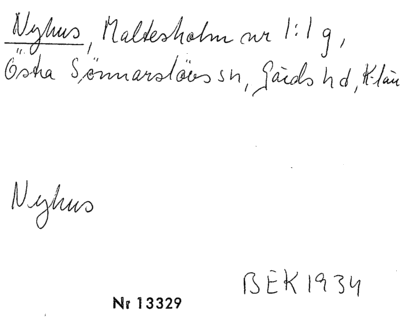 Nyhus, Maltesholm nr 1:1 g,
Östra Sönnarslövs sn, Gärds hd, K-län
Nyhus
BEK 1934
Nr 13329